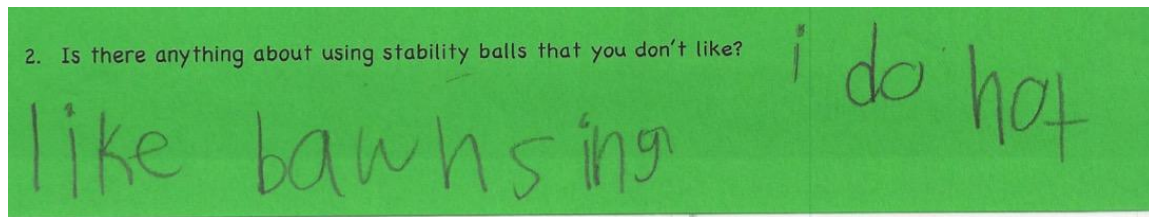 2. Is there anything about using stability balls that you don't like? i do not
like bawnsing